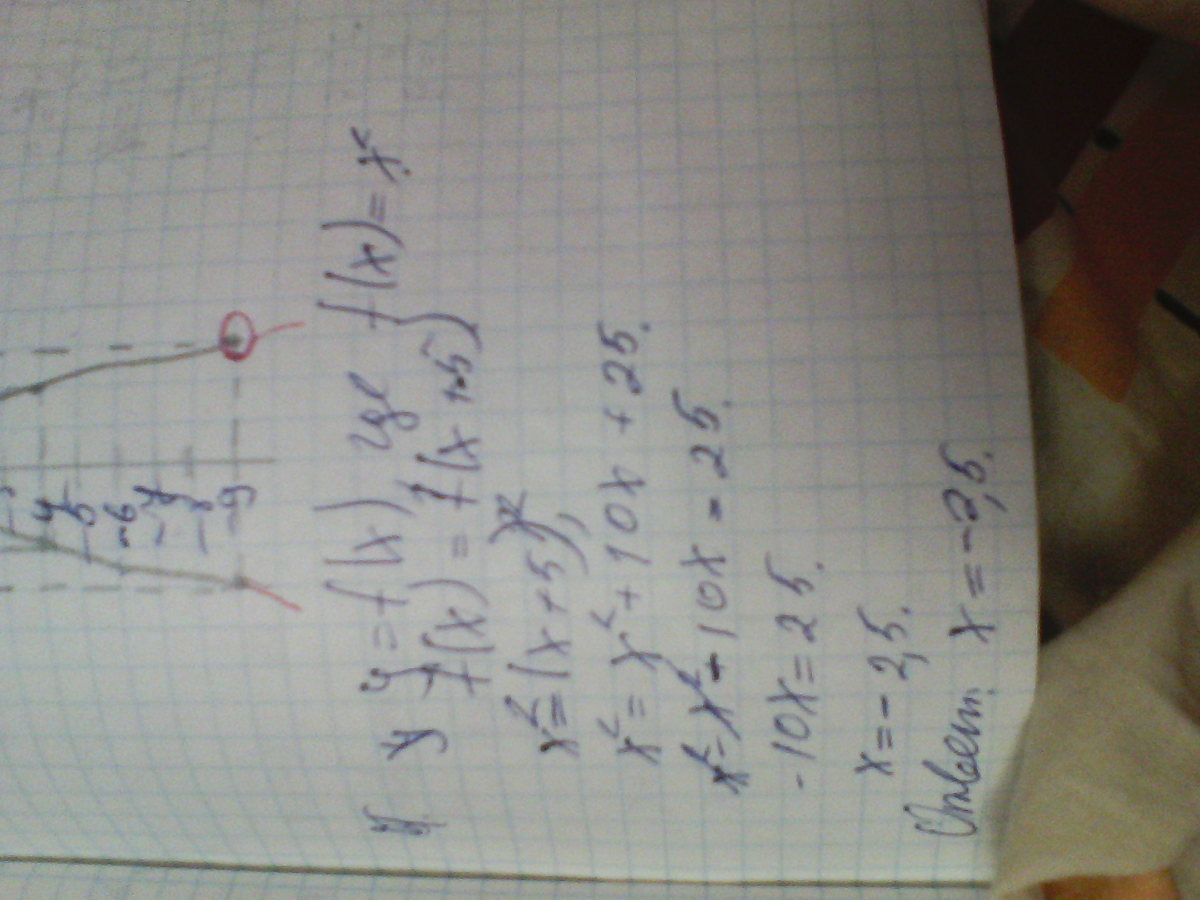 -4
-5
-6
-7
-8
-9
y = f(x) где f(x) = x²
f(x) = f(x+5)
x² = (x+5)²,
x² = x² + 10x + 25.
x² - x² - 10x = 25.
-10x = 25.
x = -2,5.
Ответ. x = -2,5.